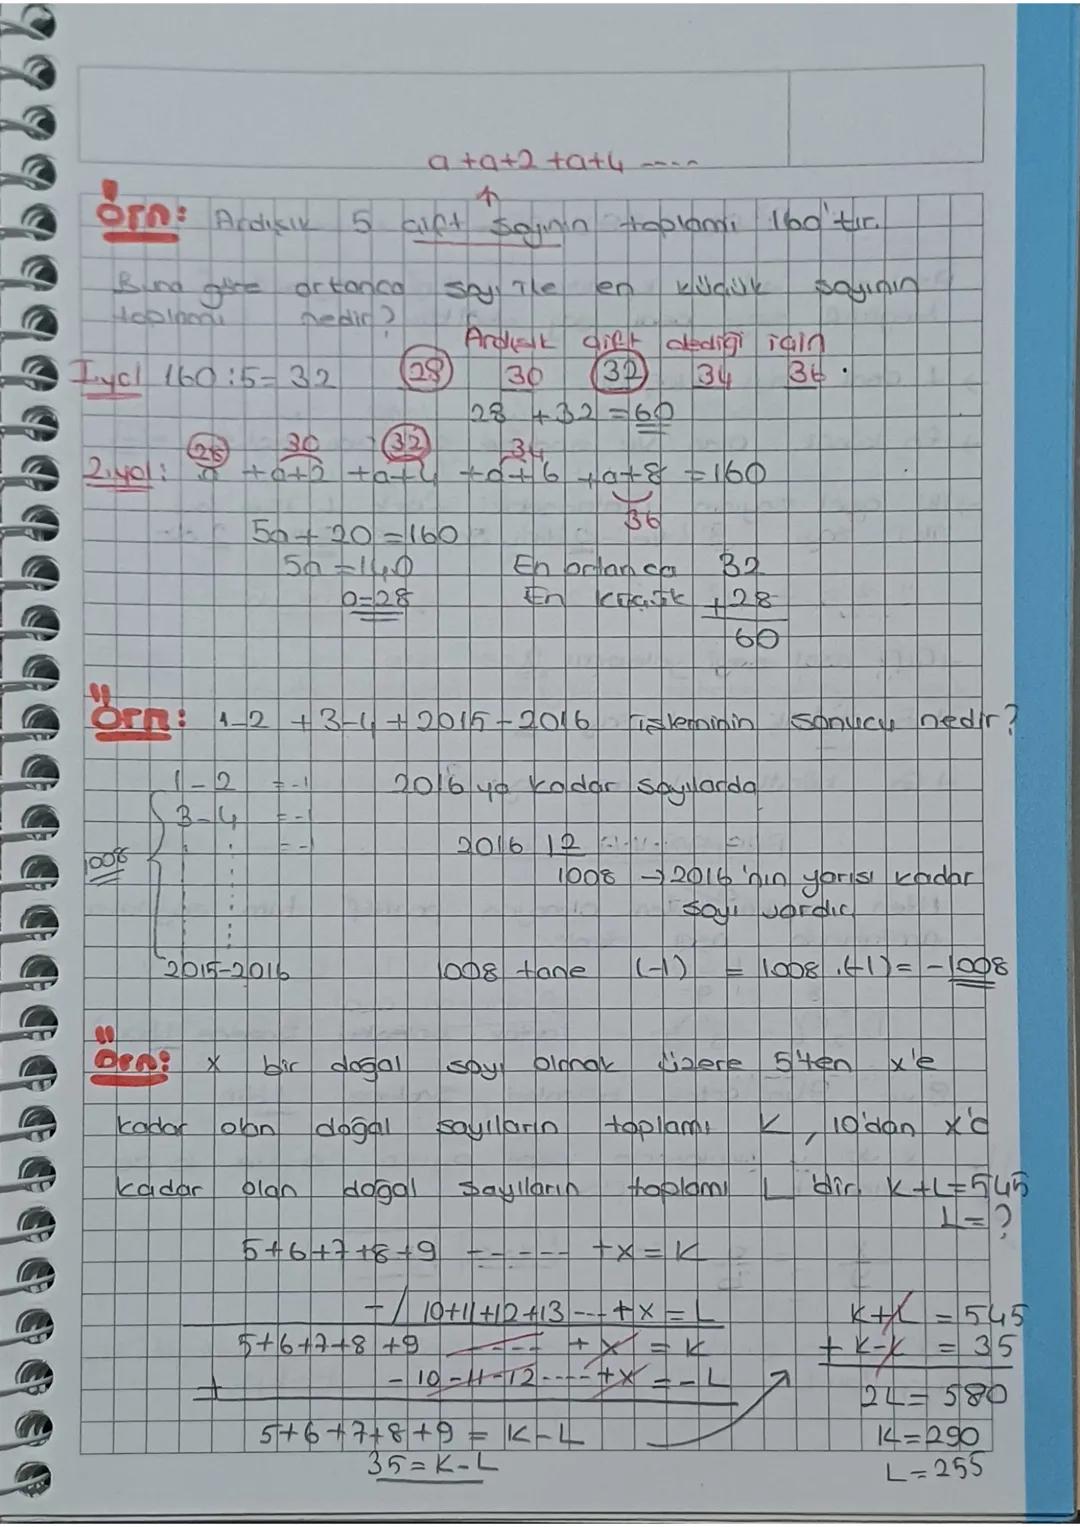 a +a+2 +a+4 ----
Örn: Ardışık 5 çift sayının toplamı 160'tır.
Buna göre ortanca sayı ile en küçük sayının
toplamı nedir?
Ardışık çift dediği için
1.yol 160:5=32 28 30 32 34 36.
28 +32 =60
28 30 32 34
2.yol: a +a+2 +a+4 +a+6 +a+8 =160
36
5a+20=160
5a=140 En ortanca 32
a=28 En küçük +28
60
Örn: 1-2 +3-4+2015-2016 işleminin sonucu nedir?
1-2 =-1 2016 ya kadar sayılarda
3-4 =-1
=-1 2016 |2
1008 1008 →2016'nın yarısı kadar
sayı vardır
2015-2016 1008 tane (-1) = 1008.(-1)= -1008
Örn: x bir doğal sayı olmak üzere 5'ten x'e
kadar olan doğal sayıların toplamı K, 10'dan x'e
kadar olan doğal sayıların toplamı L dir. K+L=545
L=?
5+6+7+8+9 ------ +x=K
-/ 10+11+12+13---+x=L K+L = 545
5+6+7+8+9 ---- +x = K + K-L = 35
+ -10-11-12----+x=-L
2L= 580
5+6+7+8+9 = K-L K=290
35=K-L L=255